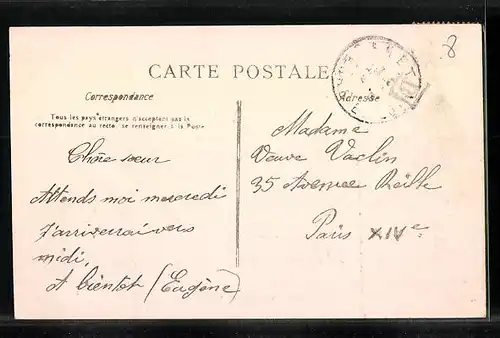 8
CARTE POSTALE
Correspondance
Adresse
Tous les pays étrangers n'acceptent pas la
correspondance au recto, se renseigner à la Poste
Chère sœur
Attends moi mercredi
J'arriverai vers
midi,
A bientôt (Eugène)
Madame
Veuve Vaclin
35 Avenue Reille
Paris XIVe